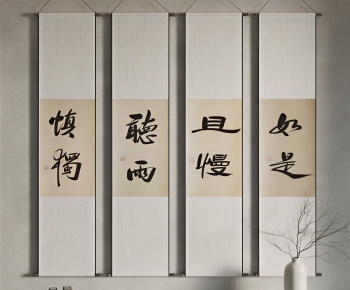 慎獨
聽雨
且慢
如是